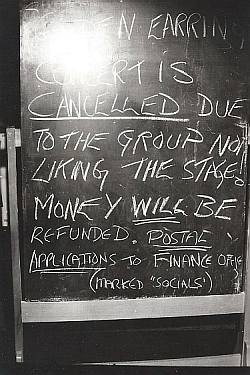 EARRING
CONCERT IS
CANCELLED DUE
TO THE GROUP NOT
LIKING THE STAGE!
MONEY WILL BE
REFUNDED. POSTAL
APPLICATIONS TO FINANCE OFFICE
(MARKED "SOCIALS")